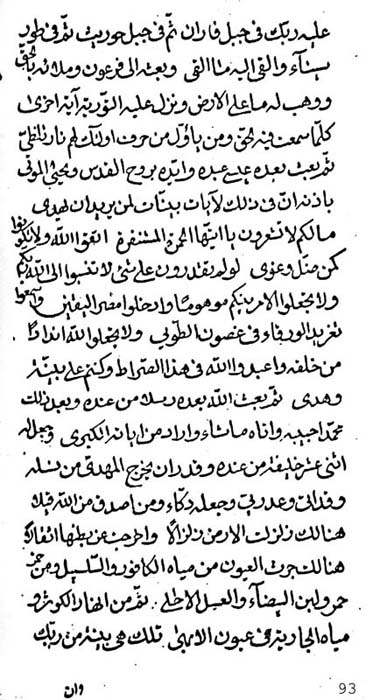 عليه ربك فى جبل فاران ثم فى جبل حوريث ثم فى طور
سيناء والقى اليه ما القى وبعثه الى فرعون وملائه بالحق
ووهب له ما على الارض ونزل عليه التورية آية اخرى
كلما سمعت فيه الحق ومن ياؤل من حرف اولئك لهم نار تلظى
ثم بعث بعده عيسى عبده وايده بروح القدس ويحيى الموتى
باذنه ان فى ذلك لآيات بينات لمن يريد ان يهدى
ما لكم لا تنفرون يا ايتها الحمر المستنفرة اتقوا الله ولا تكونوا
كمن ضل وغوى لو لم تقدرون على شئ لا تنسبوا الى الله ربكم
ولا تجعلوا الامر بينكم موهوما وادخلوا مصر اليقين واسمعوا
تغريد الورقاء فى غصون الطوبى ولا تجعلوا الله اندادا
من خلقه واعبدوا الله فى هذا الصراط وكنتم على بينة
وهدى ثم بعث الله بعده رسلا من عنده وبعد ذلك
محمدا حبيبه واتاه ما شاء واراد من اياته الكبرى وجعل له
اثنى عشر خليفة من عنده وقدر ان يخرج المهدى من نسله
وقد اتى وعد ربى وجعله دكاء ومن اصدق من الله قيلا
هنالك زلزلت الارض زلزالا واخرجت عن بطنها اثقالا
هنالك جرت العيون من مياه الكافور والسلسبيل ومن خمر
حمر ولبن البيضاء والعسل الاحلى ثم من انهار الكوثر و
مياه الجارية فى عيون الابهى تلك هى بينة من ربك
وان
93